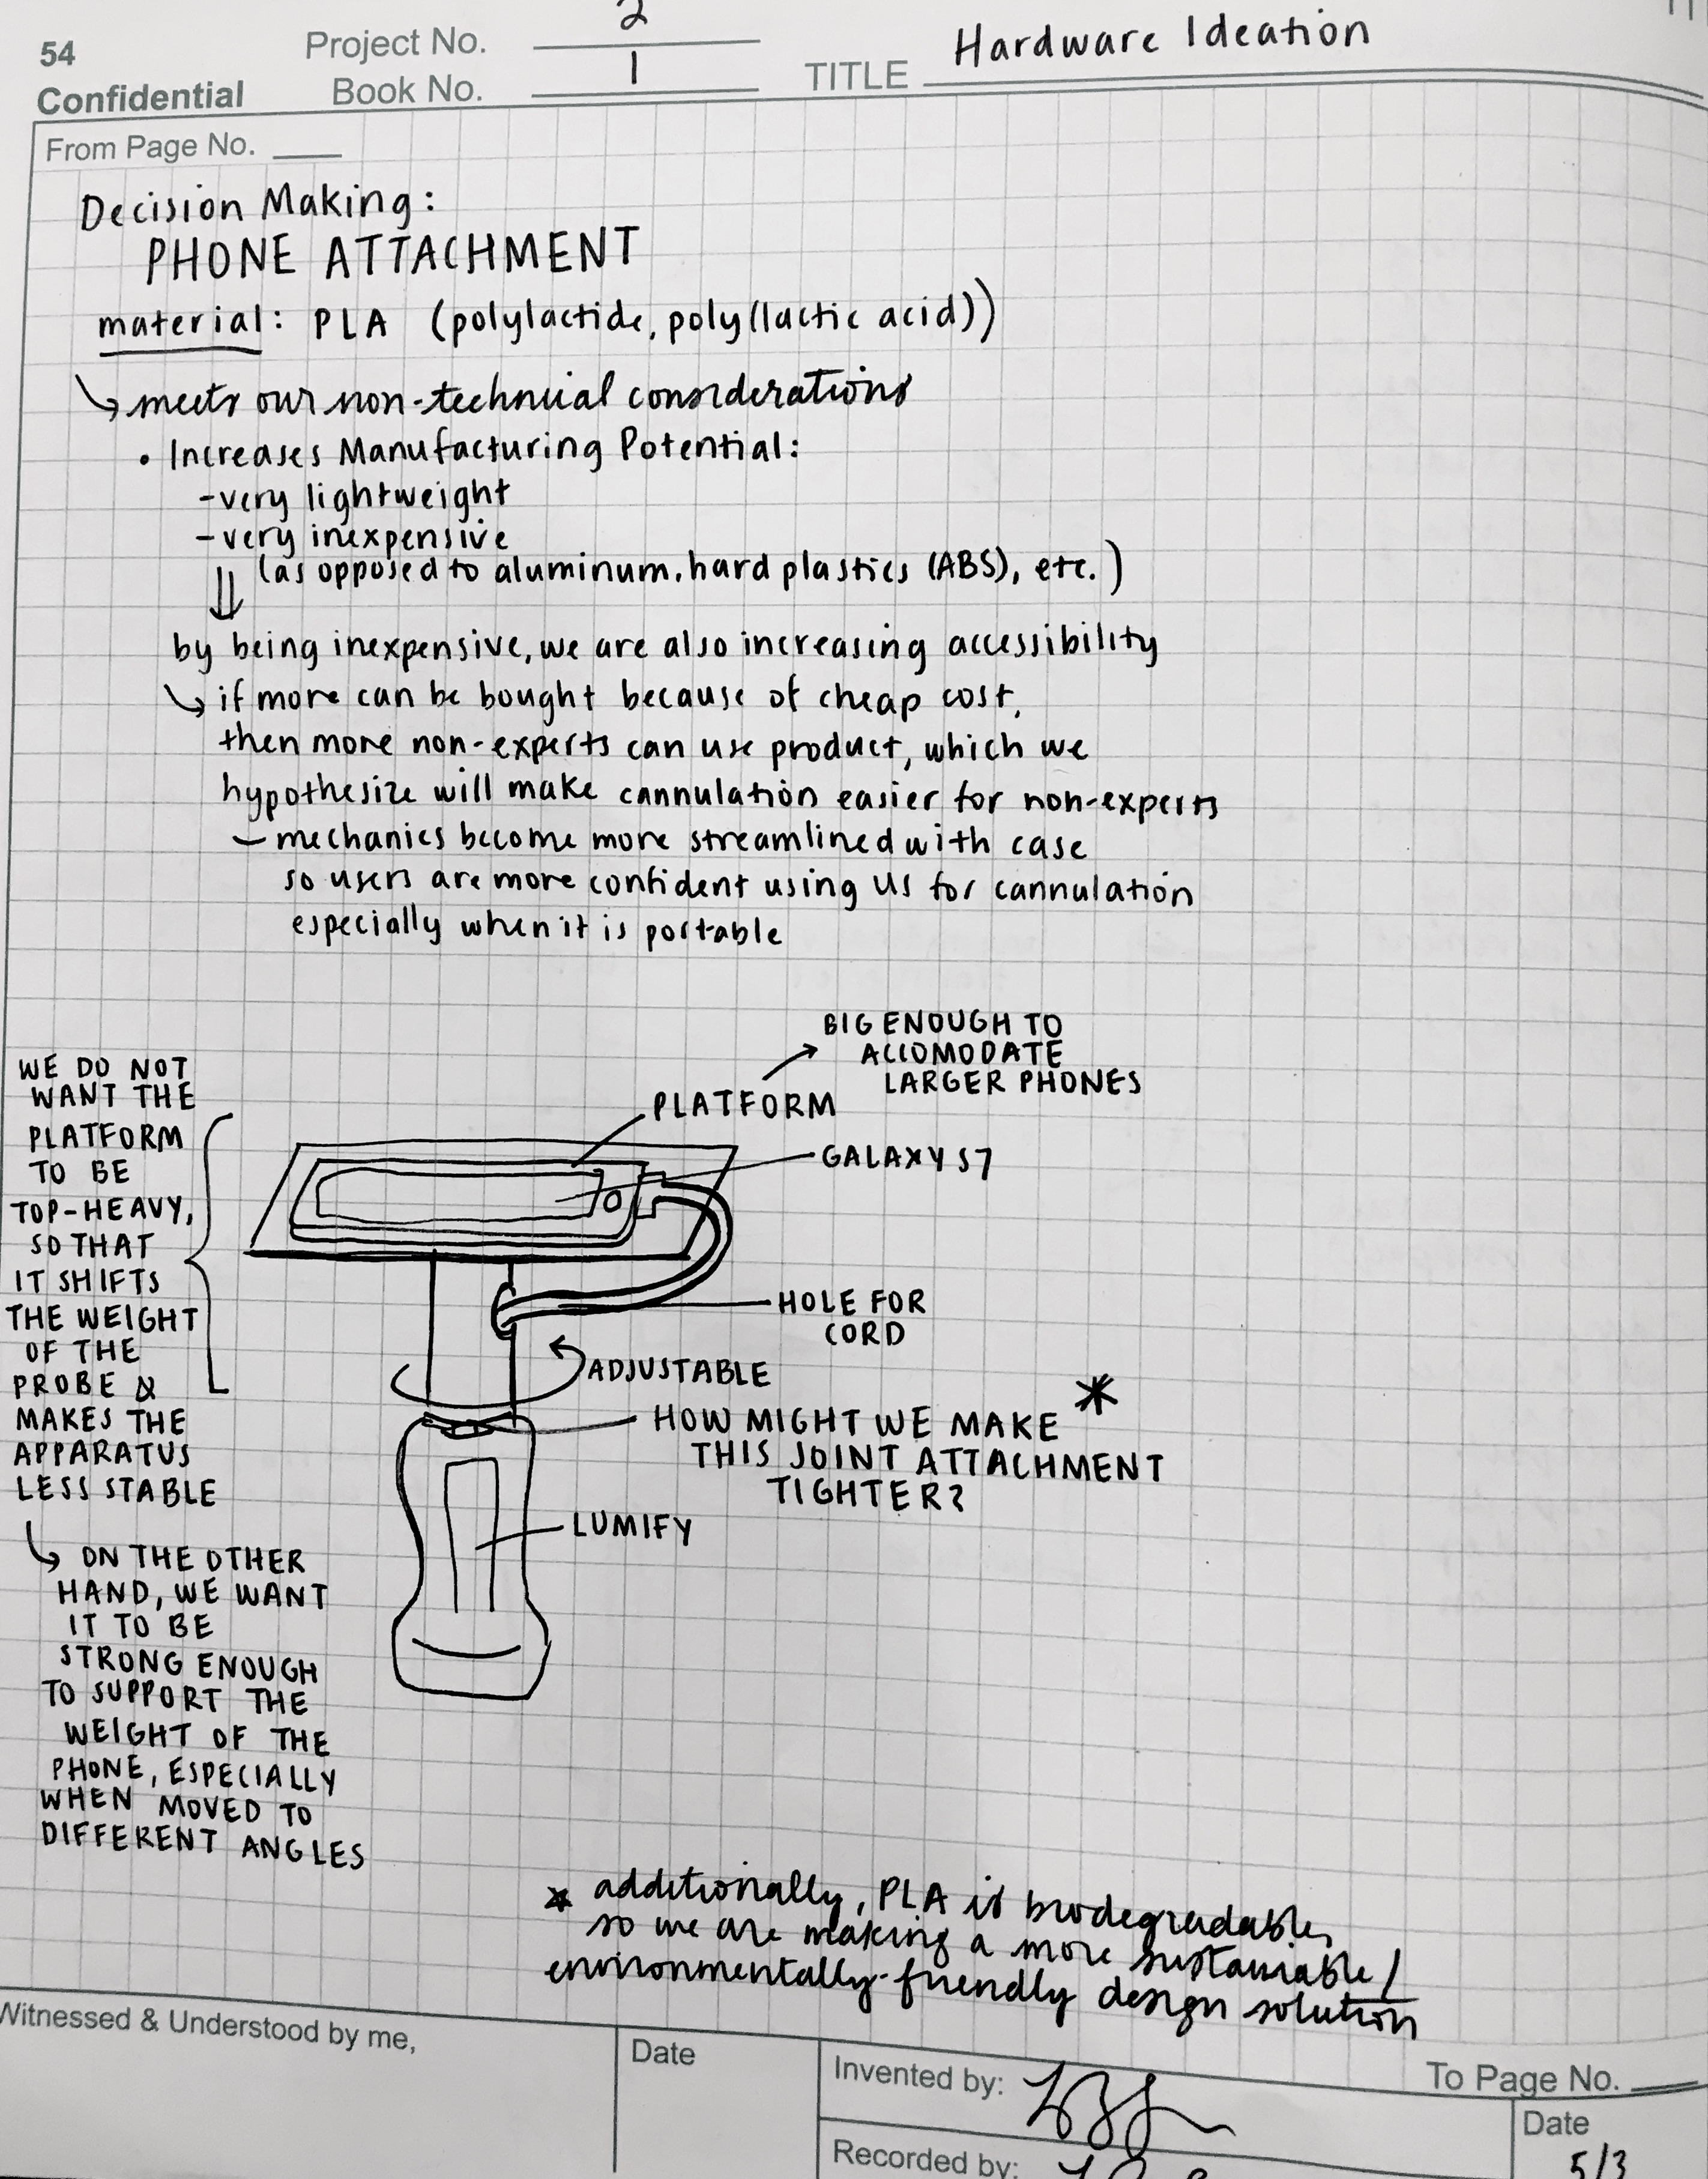 54
Project No. 2
Confidential
Book No. 1
TITLE Hardware Ideation
From Page No.
Decision Making:
PHONE ATTACHMENT
material: PLA (polylactide, poly(lactic acid))
meets our non-technical considerations
• Increases Manufacturing Potential:
-very lightweight
-very inexpensive
(as opposed to aluminum, hard plastics (ABS), etc.)
by being inexpensive, we are also increasing accessibility
if more can be bought because of cheap cost,
then more non-experts can use product, which we
hypothesize will make cannulation easier for non-experts
- mechanics become more streamlined with case
so users are more confident using us for cannulation
especially when it is portable
WE DO NOT
WANT THE
PLATFORM
TO BE
TOP-HEAVY,
SO THAT
IT SHIFTS
THE WEIGHT
OF THE
PROBE &
MAKES THE
APPARATUS
LESS STABLE
ON THE OTHER
HAND, WE WANT
IT TO BE
STRONG ENOUGH
TO SUPPORT THE
WEIGHT OF THE
PHONE, ESPECIALLY
WHEN MOVED TO
DIFFERENT ANGLES
BIG ENOUGH TO
ACCOMODATE
LARGER PHONES
PLATFORM
GALAXY S7
HOLE FOR
CORD
ADJUSTABLE
*
HOW MIGHT WE MAKE
THIS JOINT ATTACHMENT
TIGHTER?
LUMIFY
* additionally, PLA is biodegradable,
so we are making a more sustainable/
environmentally-friendly design solution
Witnessed & Understood by me,
Date
Invented by:
Recorded by:
To Page No.
Date
5/3